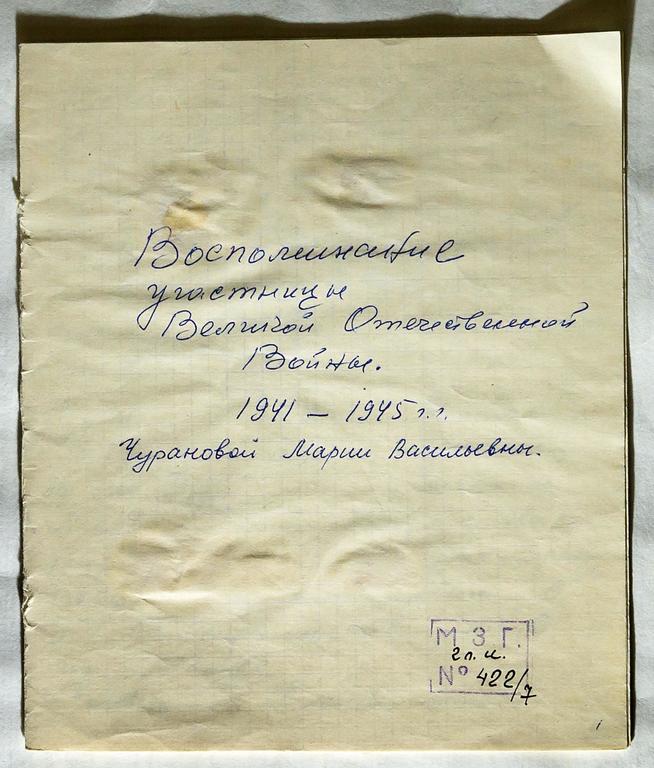 Воспоминание
участницы
Великой Отечественной
Войны.
1941 – 1945 г.г.
Чурановой Марии Васильевны.
М З Г.
гл. и.
№ 422/7